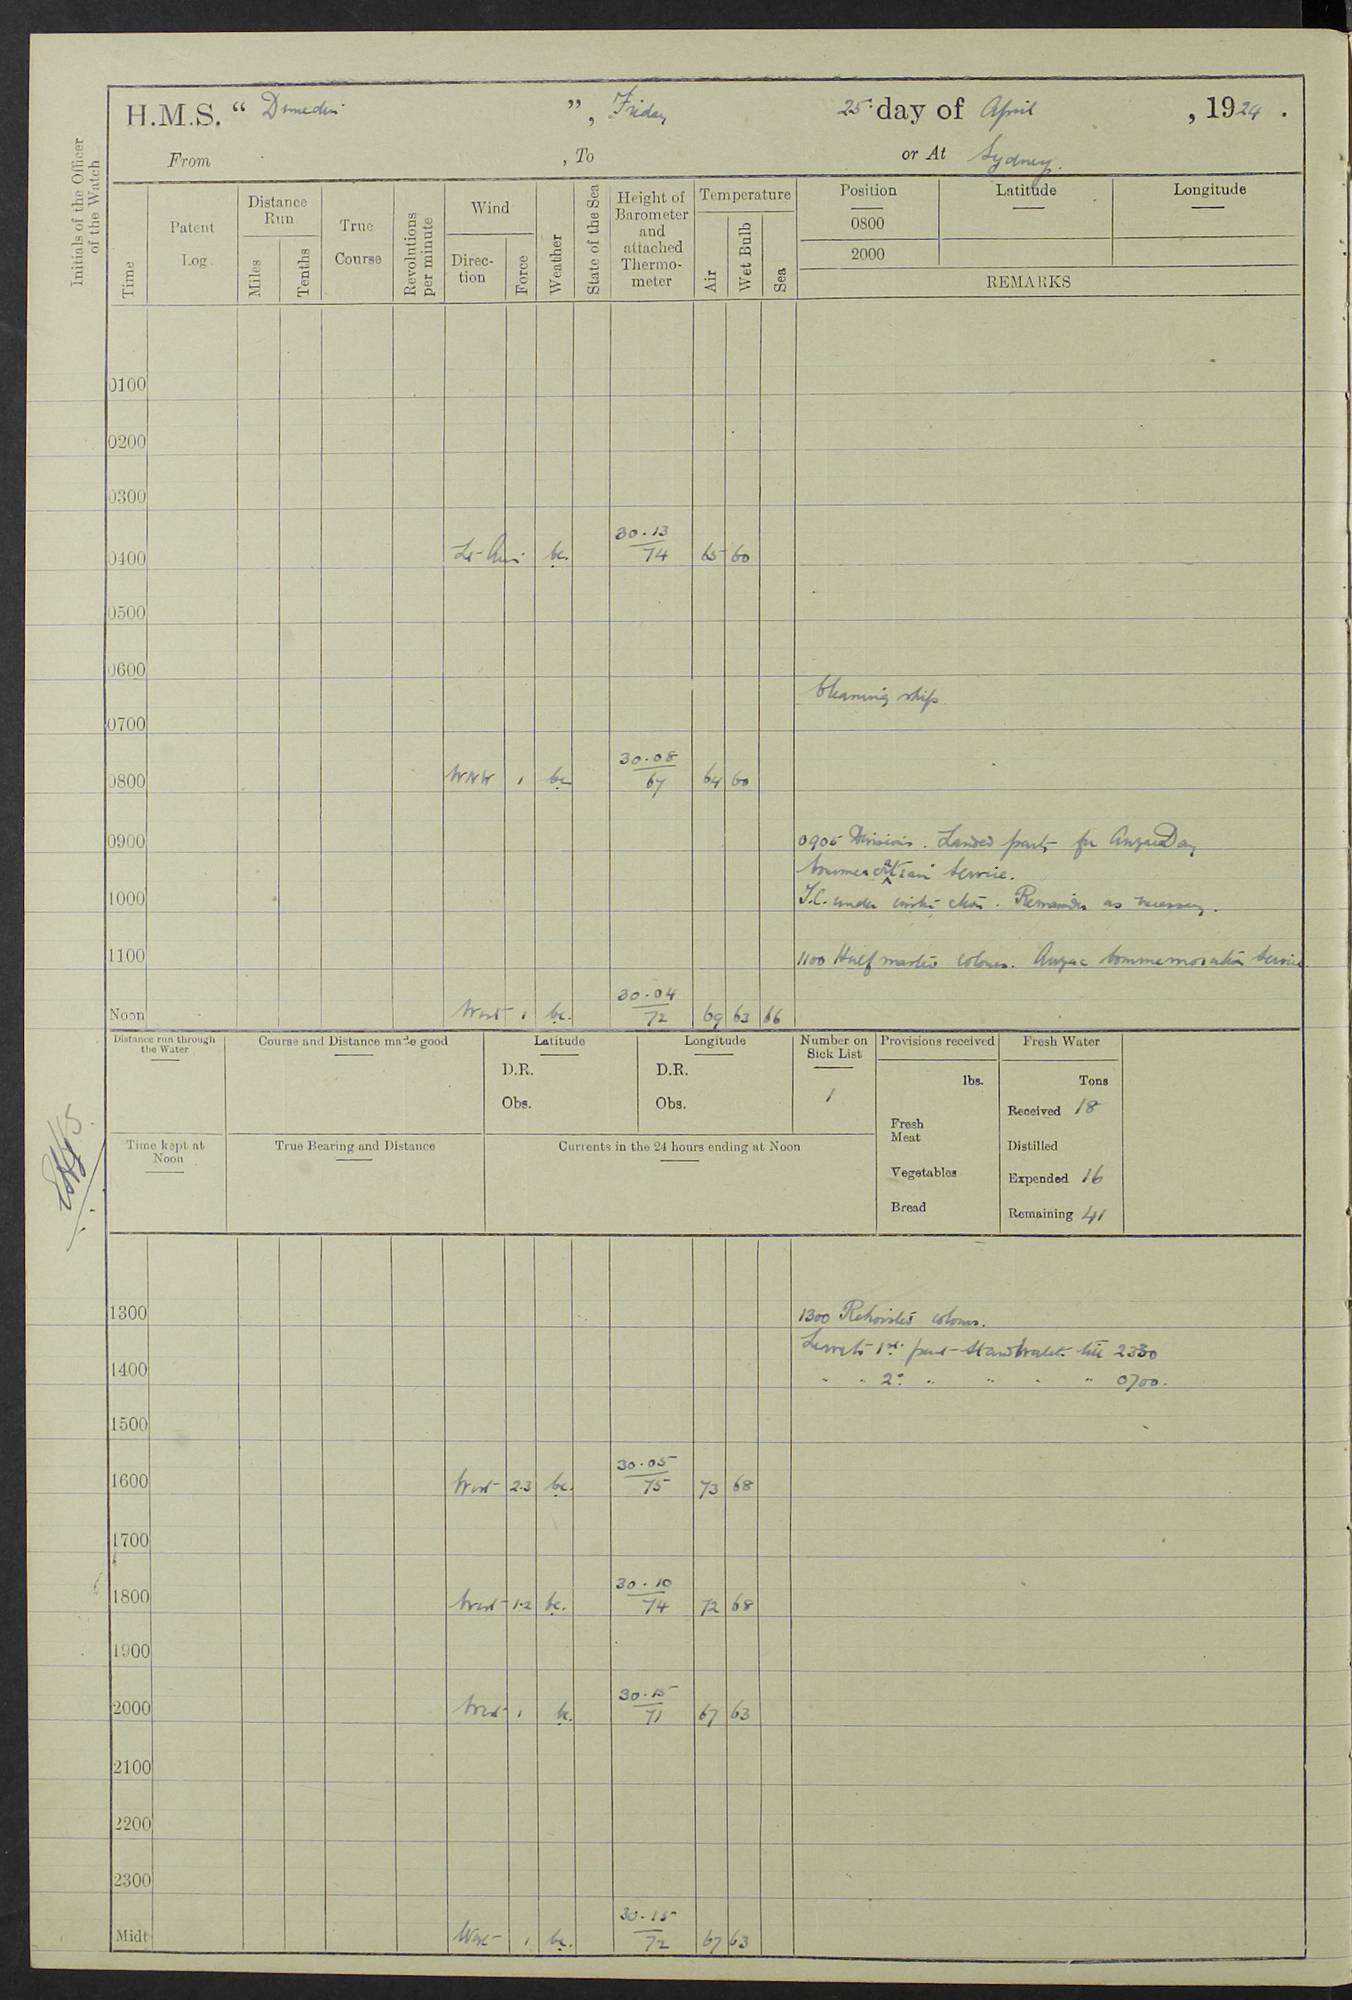 H.M.S. “ Dunedin ”, Friday 25th day of April, 1924.
From , To or At Sydney.
Initials of the Officer of the Watch
Time
Patent Log
Distance Run
Miles
Tenths
True Course
Revolutions per minute
Wind
Direction
Force
Weather
State of the Sea
Height of Barometer and attached Thermometer
Temperature
Air
Wet Bulb
Sea
Position
Latitude
Longitude
0800
2000
REMARKS
0100
0200
0300
0400 Lt Airs bc. 30.13 / 74 65 60
0500
0600
Cleaning ship
0700
0800 WNW 1 bc 30.08 / 67 64 60
0900 0905 Divisions. Landed party for Anzac Day
Commemoration Service.
1000 T.C. under instruction. Remainder as necessary.
1100 1100 Half masted colours. Anzac Commemoration Service.
Noon West 1 bc. 30.04 / 72 69 63 66
Distance run through the Water
Course and Distance made good
Latitude
D.R.
Obs.
Longitude
D.R.
Obs.
Number on Sick List
1
Provisions received
lbs.
Fresh Meat
Vegetables
Bread
Fresh Water
Tons
Received 18
Distilled
Expended 16
Remaining 41
Time kept at Noon
True Bearing and Distance
Currents in the 24 hours ending at Noon
1300 1300 Rehoisted colours.
Leave to 1st part Starbd watch till 2330
1400 " " 2nd " " " " 0700.
1500
1600 West 2.3 bc. 30.05 / 75 73 68
1700
1800 West 1.2 bc. 30.10 / 74 72 68
1900
2000 West 1 bc. 30.15 / 71 67 63
2100
2200
2300
Midt West 1 bc. 30.15 / 72 67 63